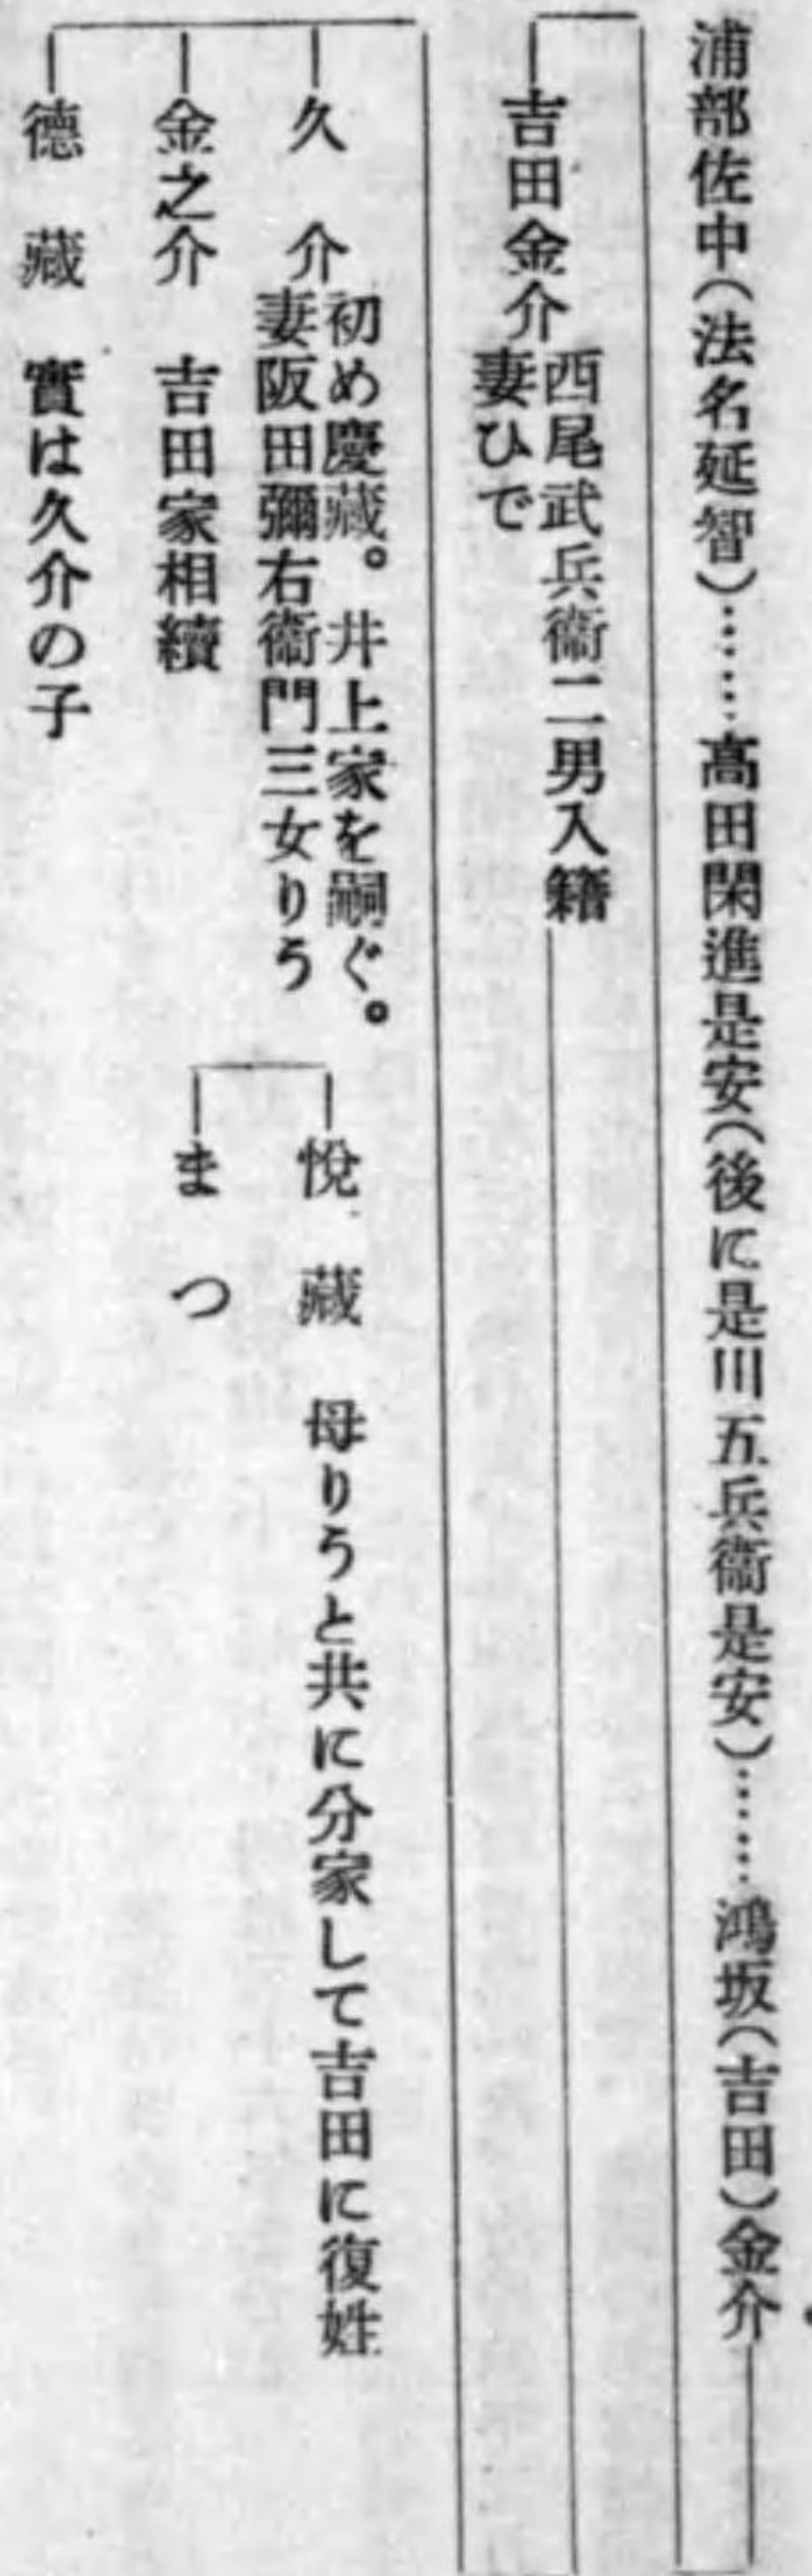 浦部佐中（法名延智）……高田閑進是安（後に是川五兵衞是安）……鴻坂（吉田）金介
吉田金介
西尾武兵衞二男入籍
妻ひで
久介
初め慶藏。井上家を嗣ぐ。
妻阪田彌右衞門三女りう
悅藏　母りうと共に分家して吉田に復姓
まつ
金之介　吉田家相續
德藏　實は久介の子